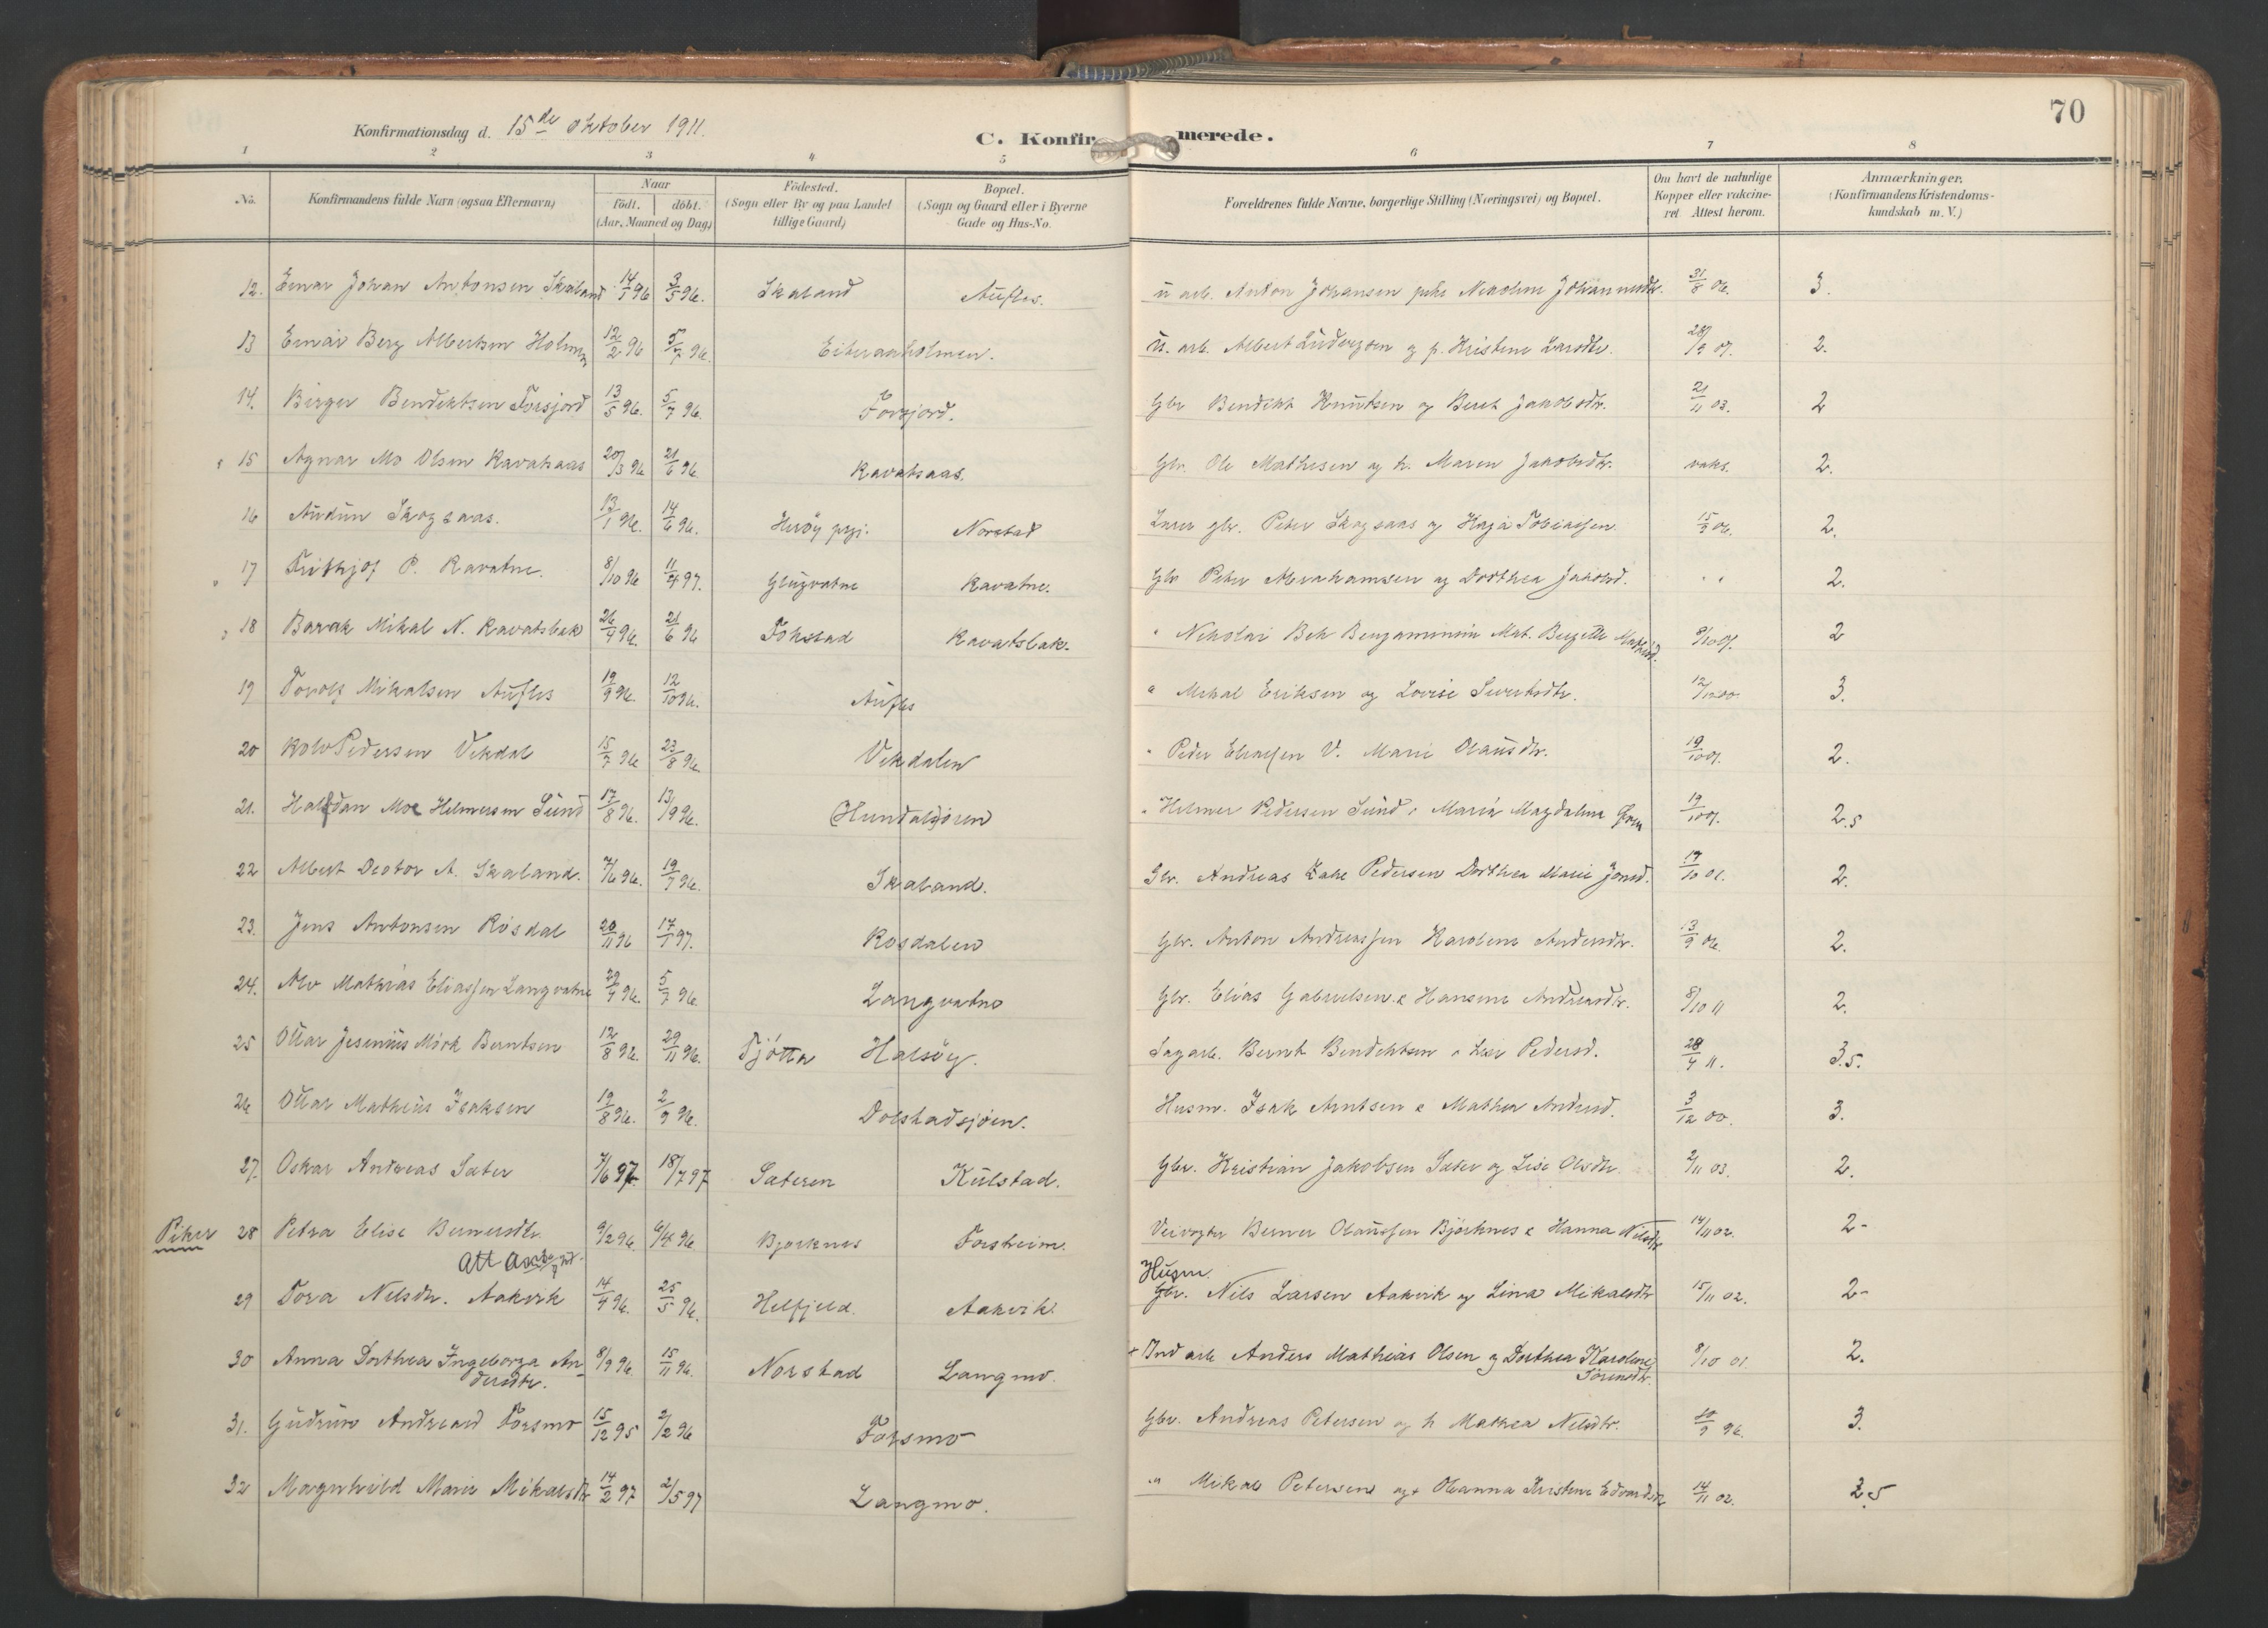 70
Konfirmationsdag d. 15de oktober 1911.
C. Konfirmerede.
1 2 3 4 5 6 7 8
No. Konfirmandens fulde Navn (ogsaa Efternavn) Naar født. døbt. (Aar, Maaned og Dag) Födested. (Sogn eller By og paa Landet tillige Gaard) Bopæl. (Sogn og Gaard eller i Byerne Gade og Hus-No. Forældrenes fulde Navne, borgerlige Stilling (Næringsvei) og Bopæl. Om havt de naturlige Kopper eller vakcineret. Attest herom. Anmærkninger. (Konfirmandens Kristendomskundskab m. V.)
12. Einar Johan Antonsen Skaland 14/1 96 3/5 96. Skaland Aufles. u. arb. Anton Johansen Nikoline Johannesdtr. 31/8 06. 3.
13 Einar Berg Albertsen Holmen 12/2 96 5/7 96. Eiteraaholmen. u. arb. Albert Ludvigsen og p. Kristine Larsdtr. 28/9 07. 2.
14. Birger Bendiktsen Forsjord 13/5 96. 5/7 96. Forsjord. Gbr Bendikt Knutsen og Beret Jakobsdtr. 21/11 03. 2
15 Agnar Mo Olsen Kavatsaas 20/3 96 21/6 96 Kavatsaas. Gbr. Ole Mathisen og h. Maren Jakobsdtr. vaks. 2.
16 Audun Skogsaas. 13/1 96. 14/6 96. Herøy prgj. Norstad Lærer gbr. Peter Skogsaas og Haja Tobiassen. 15/9 06. 2.
17 Fritjof P. Ravatne. 8/10 96 11/4 97. Glugvatne Ravatne. Gbr Peter Abrahamsen og Dorthea Jakobsd. " " 2.
18 Barak Mikal N. Kavatsbak 26/4 96. 21/6 96 Fokstad Kavatsbak. " Nikolai Bek Benjaminsen Mat. Bergette Mathisd. 8/10 07. 2
19 Torolf Mikalsen Aufles 19/9 96. 12/10 96. Aufles " Mikal Eriksen og Lovise Sivertsdtr. 12/12 00. 3.
20 Rolv Pedersen Vikdal 15/7 96 23/8 96 Vikdalen " Peder Eliassen V. Marie Olausdtr. 19/10 07. 2.
21. Halfdan Moe Helmersen Sund 17/8 96. 13/9 96. (Hundalsjøren " Helmer Pedersen Sund, Maria Magdalena 19/10 07. 2.5
22 Albert A. Skaland. 7/6 96. 19/7 96. Skaland. Gbr. Andreas Pedersen Dorthea Marie Jonsd. 19/10 01. 2.
23. Jens Antonsen Rösdal 20/11 96 17/1 97. Rosdalen Gbr. Anton Andreassen Karolene Andersdtr. 13/9 06. 2.
24. Alv Mathias Eliassen Langvatne 29/4 96. 5/7 96. Langvatne Gbr. Elias Gabrielsen & Hansine Andreasdtr. 8/10 11 2.
25 Ottar Jesenius Mörk Berntsen 12/8 96. 29/11 96. Tjötta Halsöy. Sagarb. Bernt Bendiktsen Pedersd. 28/4 11. 3.5.
26 Ottar Matheus Isaksen 19/8 96. 2/9 96. Dolstadsjöen. Husm. Isak Arntsen & Mathea Andersd. 3/12 00. 3.
27. Oskar Andreas Sæter 7/6 97. 18/7 97 Sæteren Kulstad. Gbr. Kristian Jakobsen Sæter og Lise Olsdtr. 2/11 03. 2.
Piker 28 Petra Elise Bernersdtr. 9/2 96. 6/4 96 Bjørknes Forsheim. Veivogter Berner Olaussen Björknes & Hanna Nilsdtr 14/11 02. 2-
Att
29 Tora Nelsdtr. Aakvik 14/4 96. 25/5 96. Helfjeld. Aakvik. Husm. Gbr. Nils Larsen Aakvik og Lina Mikalsdtr 15/11 02. 2-
30 Anna Dorthea Ingeborga An- 8/9 96. 15/11 96. Norstad Langmo. + Ind arb Anders Mathias Olsen og Dorthea Karoline 8/10 01 2.
dersdtr. Sörensdtr.
31. Gudrun Andreasd Forsmo 15/12 95 2/2 96 Forsmo Gbr. Andreas Petersen og h Mathea Nelsdtr. 20/9 96. 3.
32 Magnhild Marie Mikalsdtr 14/2 97 2/5 97 Langmo. " Mikal Petersen og Oleanna Kristine Edvardsdtr 14/11 02. 2.5